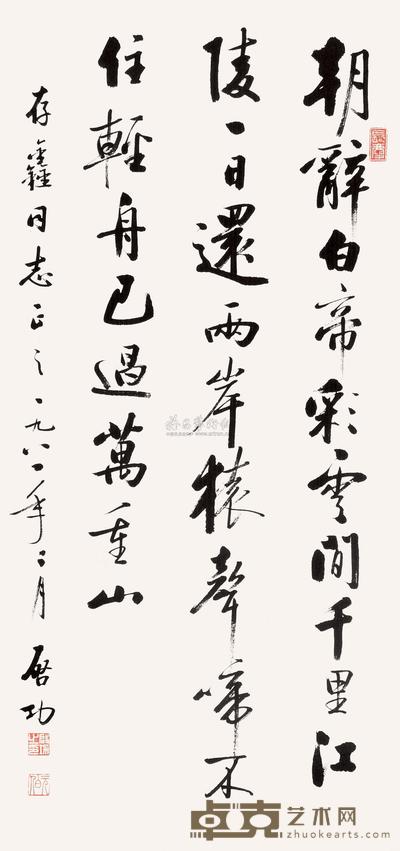 朝辭白帝彩雲間千里江
陵一日還兩岸猿聲啼不
住輕舟已過萬重山
存鑫同志正之一九八一年二月
啓功
卓克艺术网
zhuokearts.com